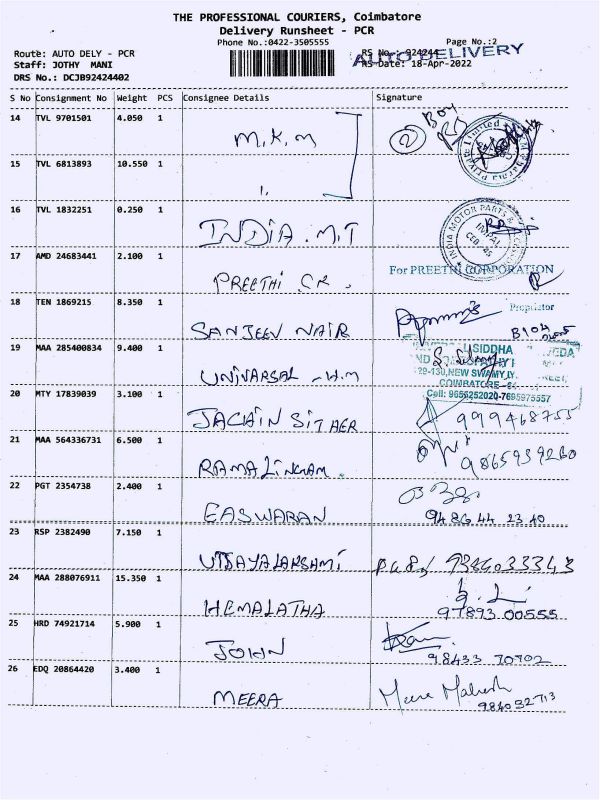 THE PROFESSIONAL COURIERS, Coimbatore
Delivery Runsheet - PCR
Phone No.:0422-3505555
Page No.:2
Route: AUTO DELY - PCR
RS No.: 924244
AUTO DELIVERY
Staff: JOTHY MANI
RS Date: 18-Apr-2022
DRS No.: DCJB92424402
S No Consignment No Weight PCS Consignee Details Signature
14 TVL 9701501 4.050 1
M.K.M
2
Private Limited
15 TVL 6813893 10.550 1
16 TVL 1832251 0.250 1
INDIA. M.T
INDIA MOTOR PARTS &
17 AMD 24683441 2.100 1
PREETHI CR.
For PREETHI CORPORATION
Proprietor
18 TEN 1869215 8.350 1
SANJEEV NAIR
19 MAA 285400834 9.400 1
UNIVARSAL - H.M
SIDDHA
NEW SWAMY
COIMBATORE
Cell: 9656252020-7695975557
20 MTY 17839039 3.100 1
JACHIN SITHER
999468755
21 MAA 564336731 6.500 1
RAMALINGAM.
9865939260
22 PGT 2354738 2.400 1
EASWARAN
94864 44 23 40
23 RSP 2382490 7.150 1
VIJAYALAKSAMI
9384033343
24 MAA 288076911 15.350 1
HEMALATHA
97893 00555
25 HRD 74921714 5.900 1
JOHN
98433 70702
26 EDQ 20864420 3.400 1
MEERA
Meera Mahesh
984032713